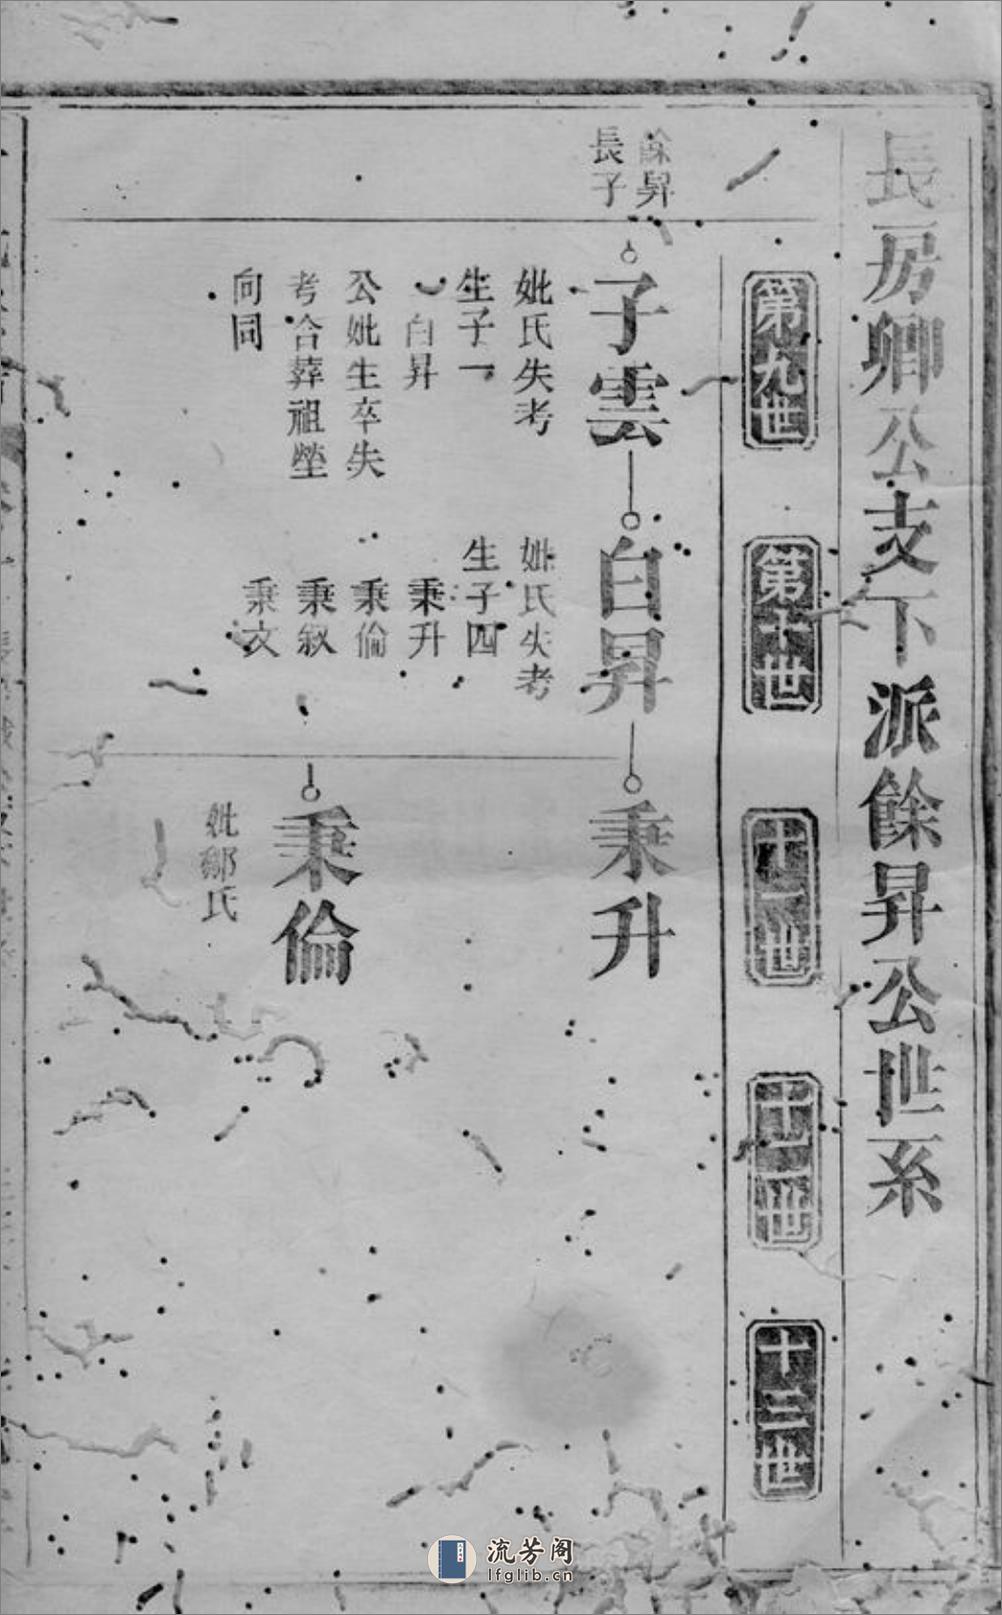 長房卿公支下派餘昇公世系
第九世
第十世
十一世
十二世
十三世
餘昇
長子
子雲
妣氏失考
生子一
白昇
公妣生卒失
考合葬祖塋
向同
白昇
妣氏失考
生子四
秉升
秉倫
秉叙
秉文
秉升
秉倫
妣鄒氏
流芳阁
lfglib.cn